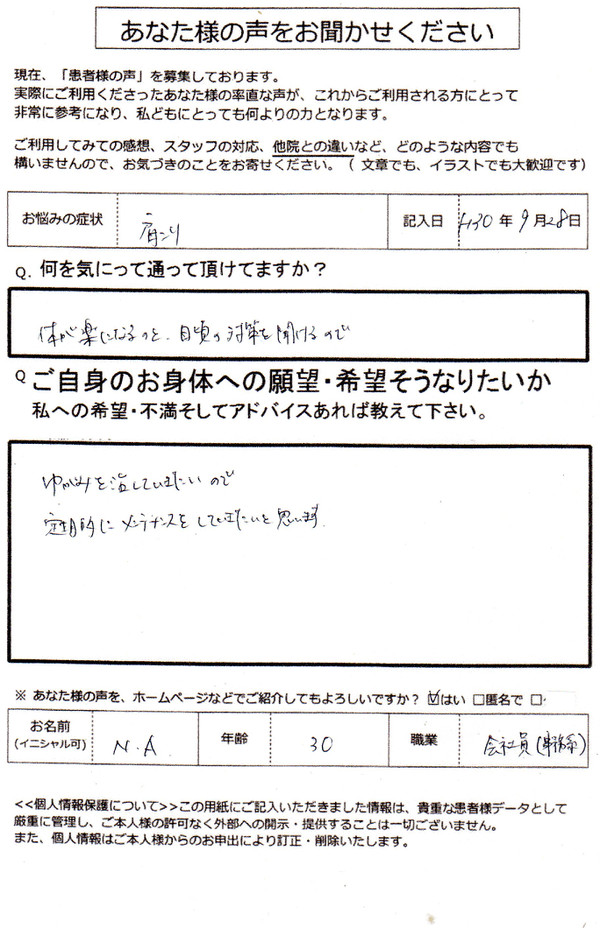 あなた様の声をお聞かせください
現在、「患者様の声」を募集しております。
実際にご利用くださったあなた様の率直な声が、これからご利用される方にとって
非常に参考になり、私どもにとっても何よりの力となります。
ご利用してみての感想、スタッフの対応、他院との違いなど、どのような内容でも
構いませんので、お気づきのことをお寄せください。（ 文章でも、イラストでも大歓迎です）
お悩みの症状 肩こり 記入日 H30 年 9 月 28 日
Q. 何を気にって通って頂けてますか？
体が楽になるのと、日頃の対策を聞けるので
Q ご自身のお身体への願望・希望そうなりたいか
私への希望・不満そしてアドバイスあれば教えて下さい。
ゆがみを治していきたいので
定期的にメンテナンスをしていきたいと思います
※ あなた様の声を、ホームページなどでご紹介してもよろしいですか？ ☑はい □匿名で □
お名前 (イニシャル可) N.A 年齢 30 職業 会社員(事務系)
<<個人情報保護について>>この用紙にご記入いただきました情報は、貴重な患者様データとして
厳重に管理し、ご本人様の許可なく外部への開示・提供することは一切ございません。
また、個人情報はご本人様からのお申出により訂正・削除いたします。